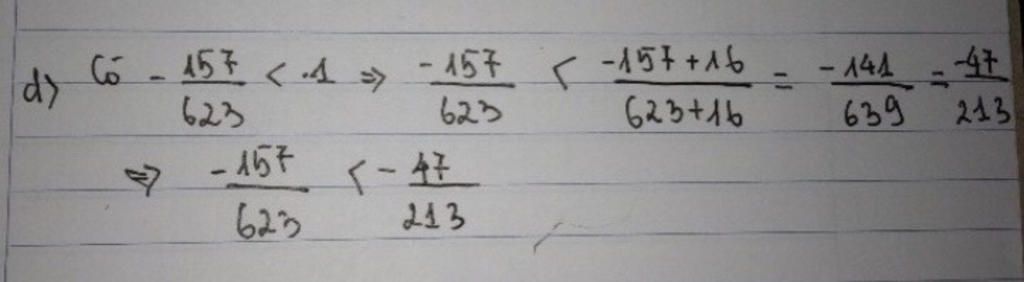 d) Có - 157/623 < 1 => -157/623 < -157+16/623+16 = -141/639 = -47/213
=> -157/623 < - 47/213